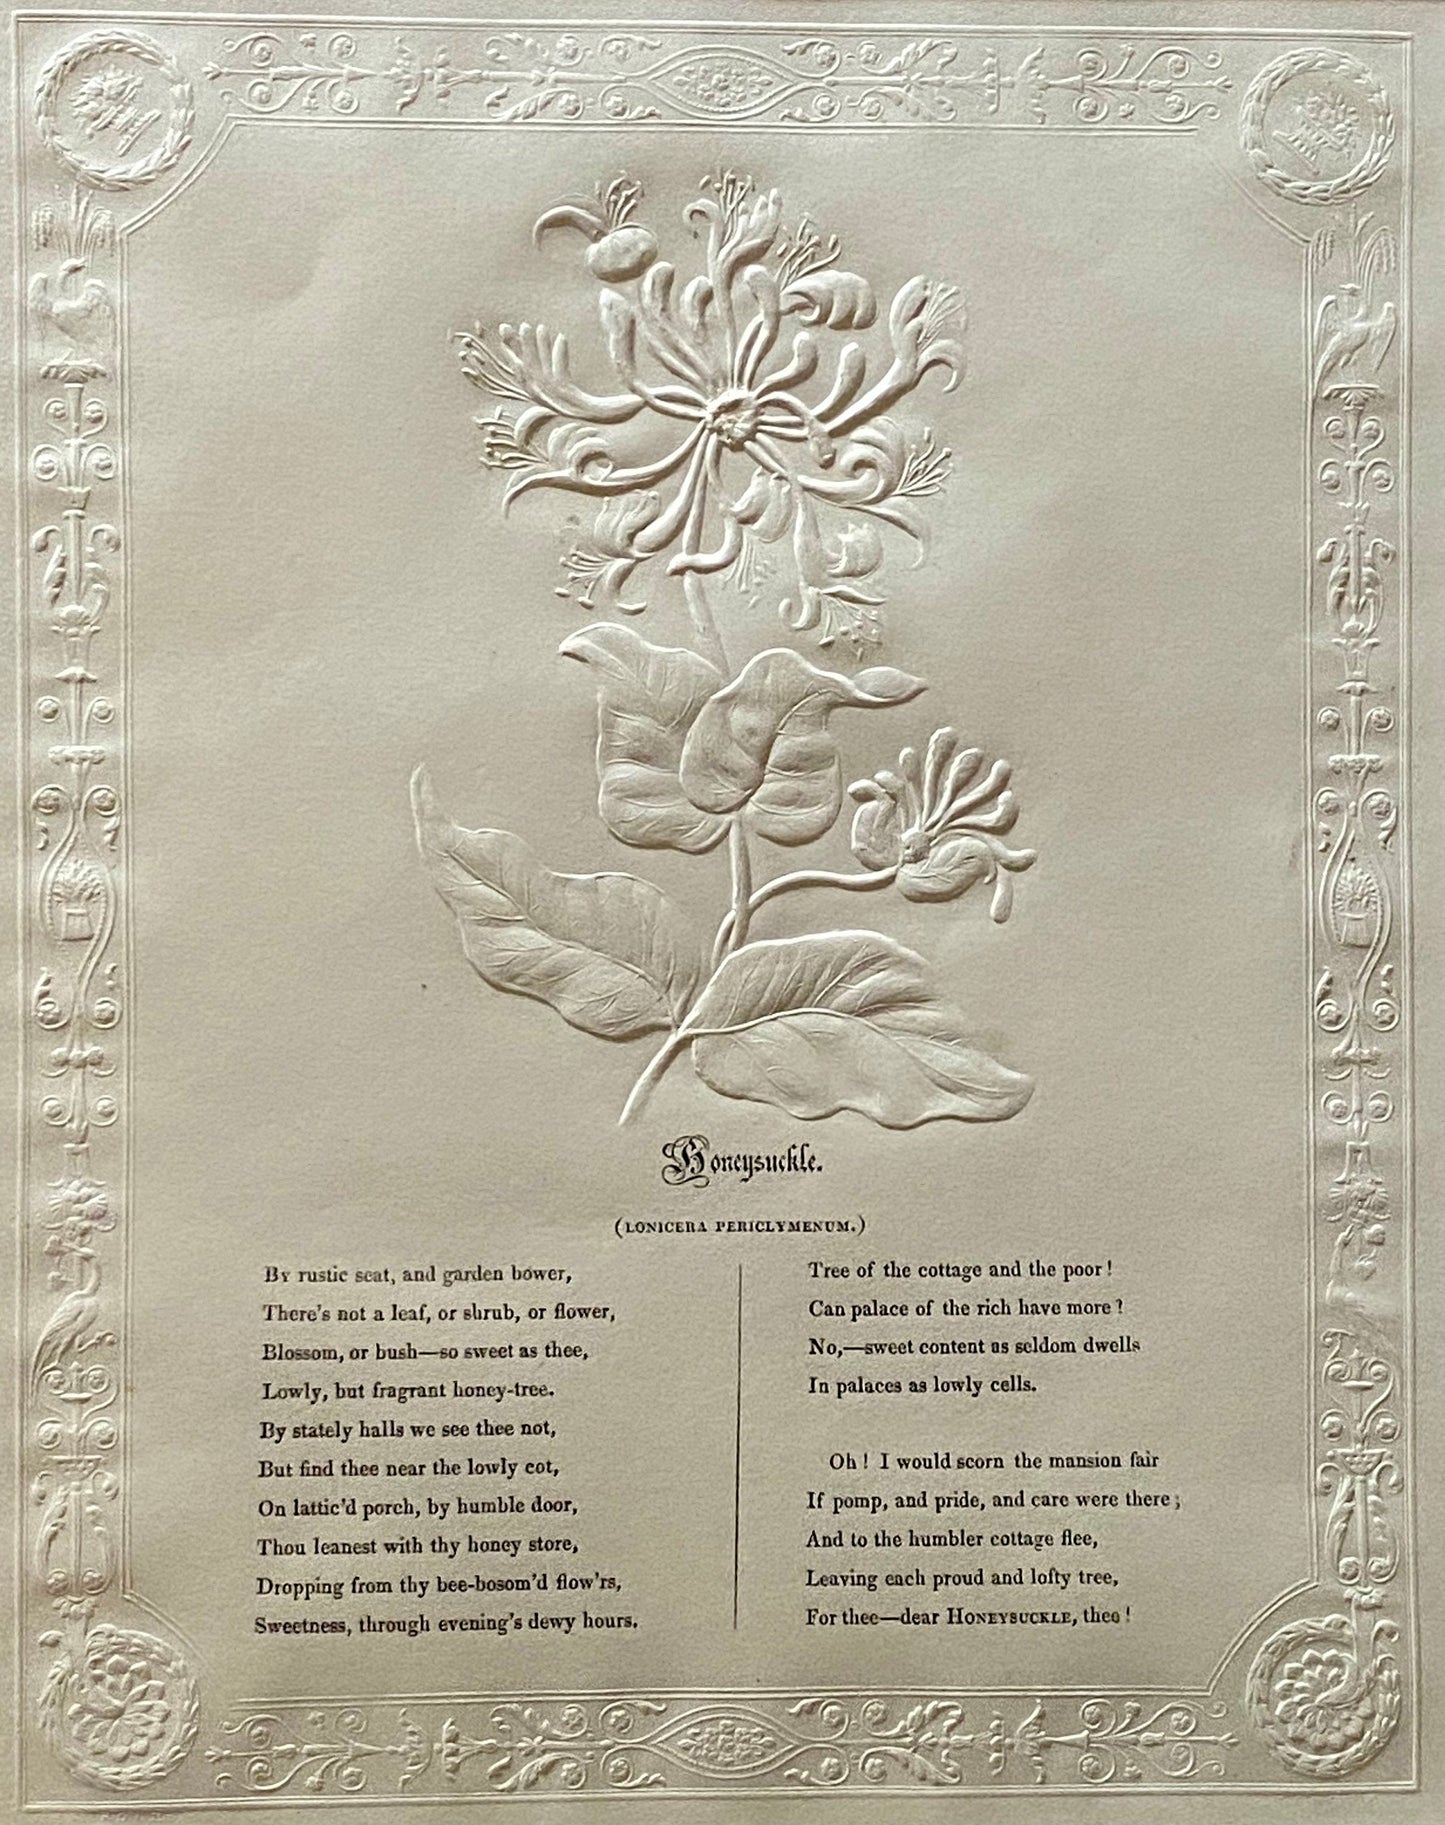 Honeysuckle.
(LONICERA PERICLYMENUM.)
By rustic seat, and garden bower,
There's not a leaf, or shrub, or flower,
Blossom, or bush—so sweet as thee,
Lowly, but fragrant honey-tree.
By stately halls we see thee not,
But find thee near the lowly cot,
On lattic'd porch, by humble door,
Thou leanest with thy honey store,
Dropping from thy bee-bosom'd flow'rs,
Sweetness, through evening's dewy hours.
Tree of the cottage and the poor!
Can palace of the rich have more?
No,—sweet content as seldom dwells
In palaces as lowly cells.
Oh! I would scorn the mansion fair
If pomp, and pride, and care were there;
And to the humbler cottage flee,
Leaving each proud and lofty tree,
For thee—dear HONEYSUCKLE, thee!